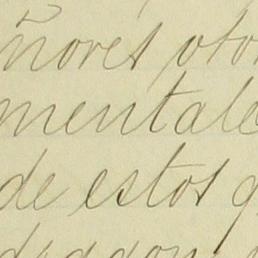 ñores oto
mentale
de estos q